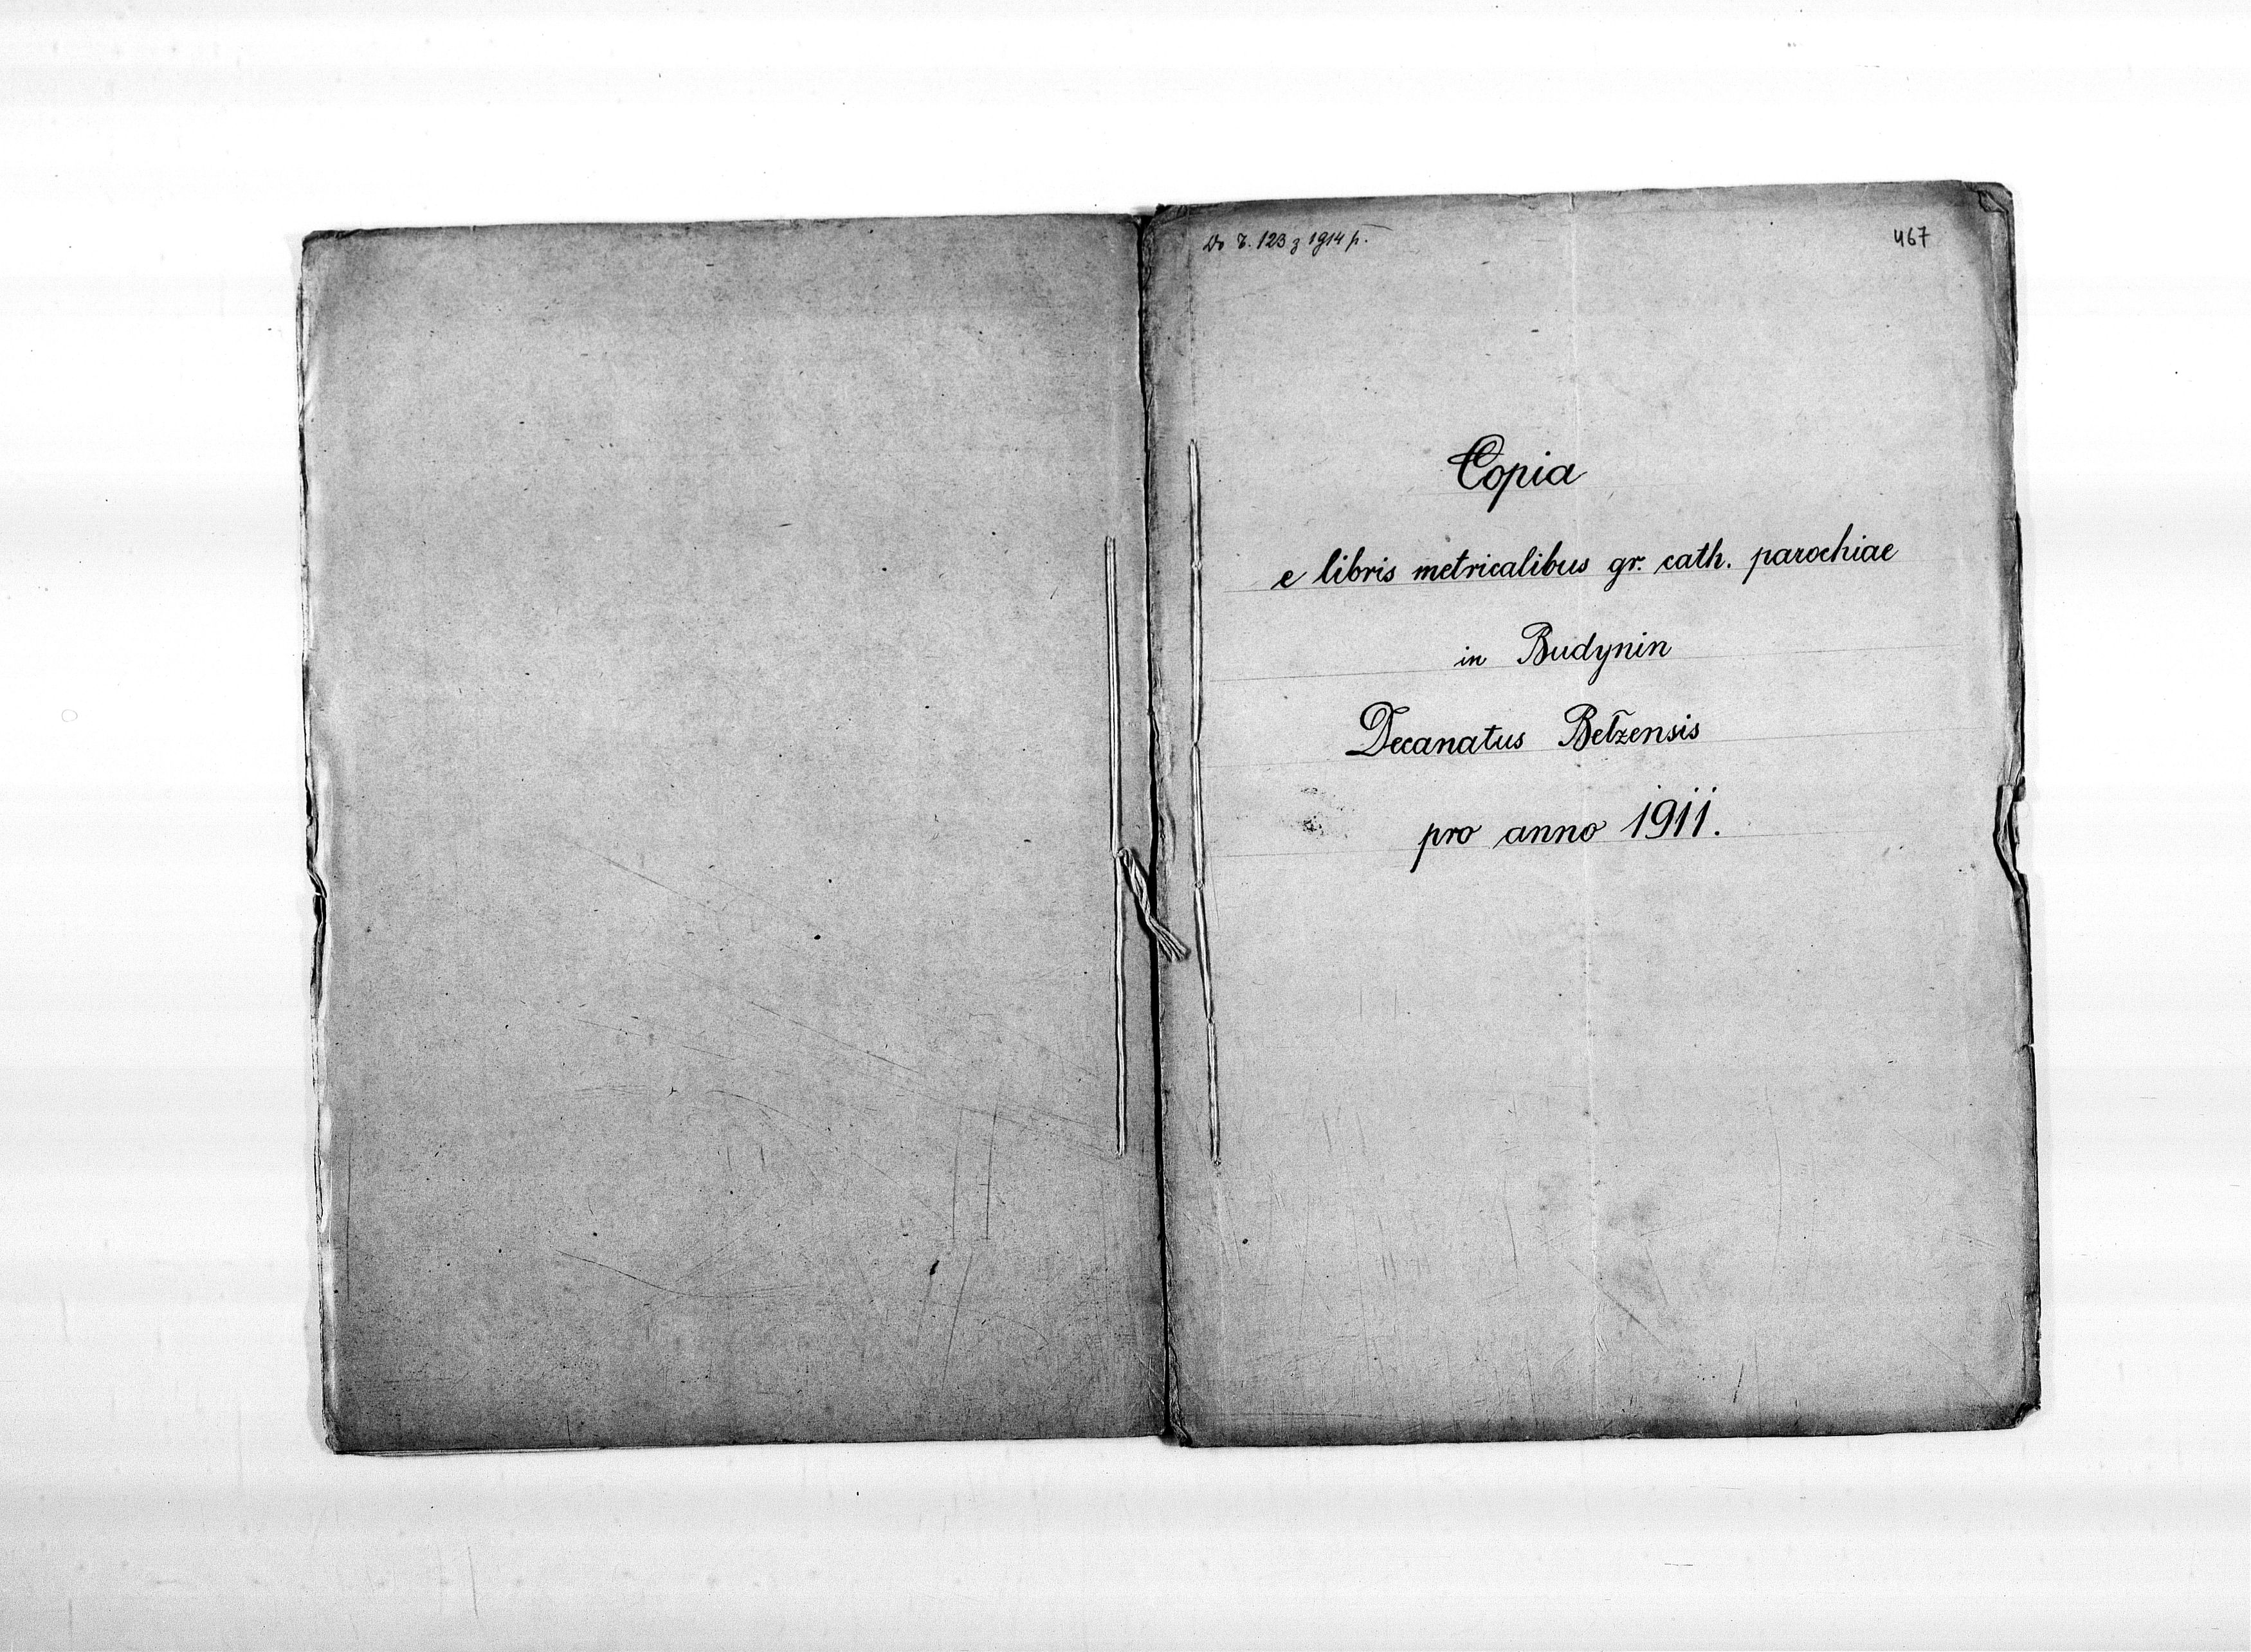 Do 123 z 1914 p.
467
Copia
e libris metricalibus gr. cath. parochiae
in Budynin
Decanatus Bełzensis
pro anno 1911.